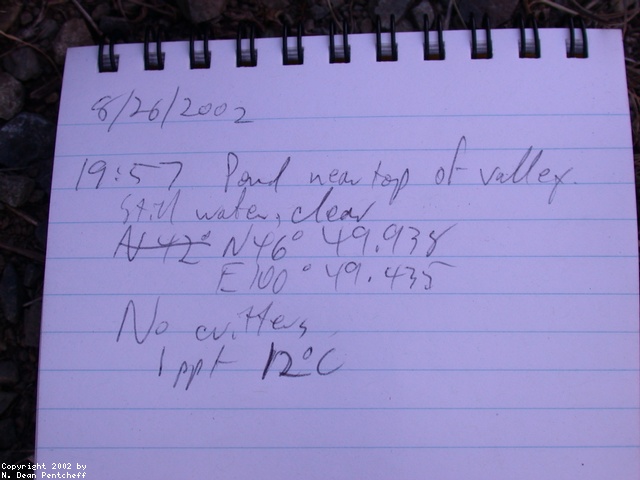 8/26/2002
19:57 Pond near top of valley.
Still water, clear
N 42° N46° 49.938
E100° 49.435
No critters
1 ppt 12°C
Copyright 2002 by
N. Dean Pentcheff